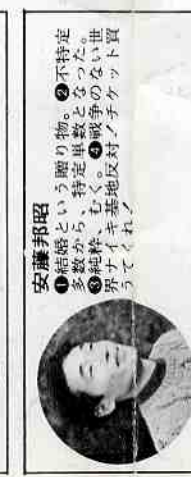 安藤邦昭
❶結婚という贈り物。❷不特定
多数から、特定単数となった。
❸純粋、むく。❹戦争のない世
界ナイキ基地反対!チケット買
うてくれ!